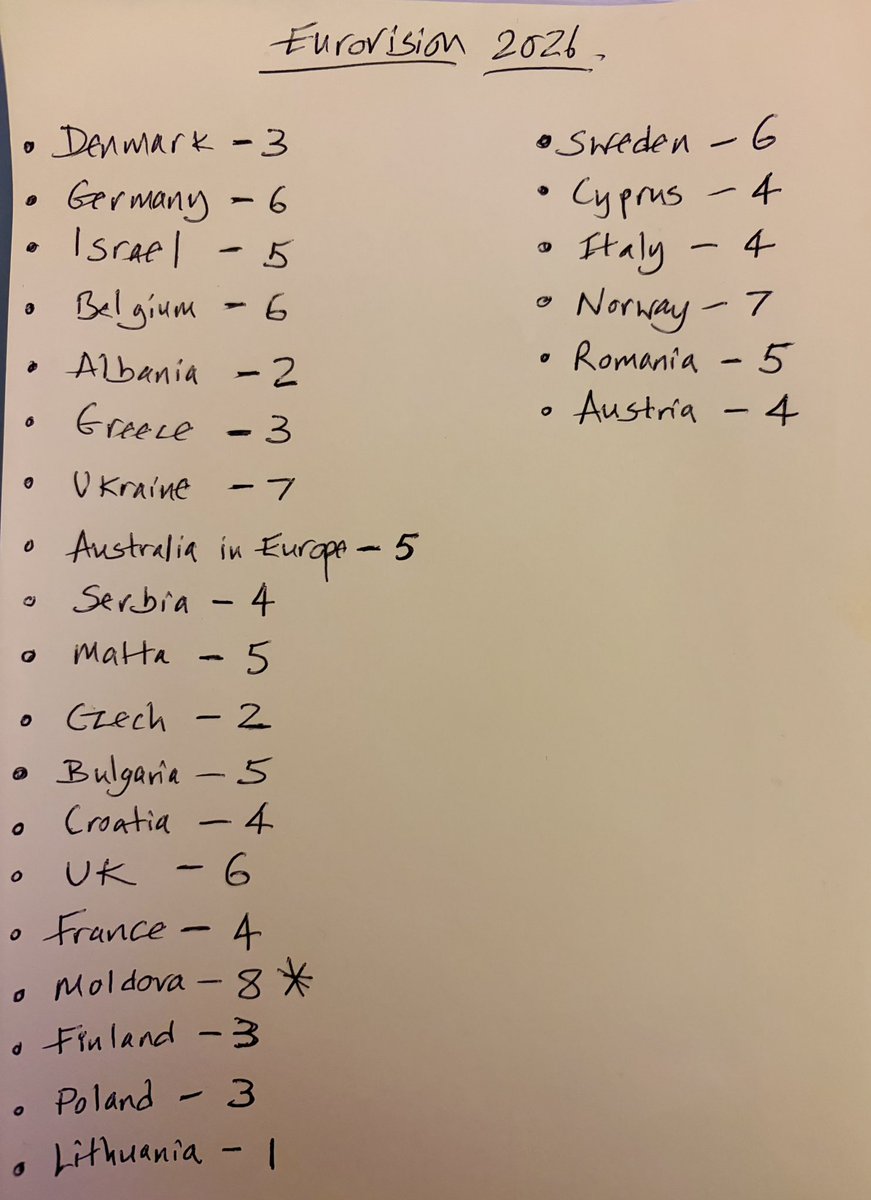 Eurovision 2026.
• Denmark - 3
• Germany - 6
• Israel - 5
• Belgium - 6
• Albania - 2
• Greece - 3
• Ukraine - 7
• Australia in Europe - 5
• Serbia - 4
• Malta - 5
• Czech - 2
• Bulgaria - 5
• Croatia - 4
• UK - 6
• France - 4
• Moldova - 8 *
• Finland - 3
• Poland - 3
• Lithuania - 1
• Sweden - 6
• Cyprus - 4
• Italy - 4
• Norway - 7
• Romania - 5
• Austria - 4